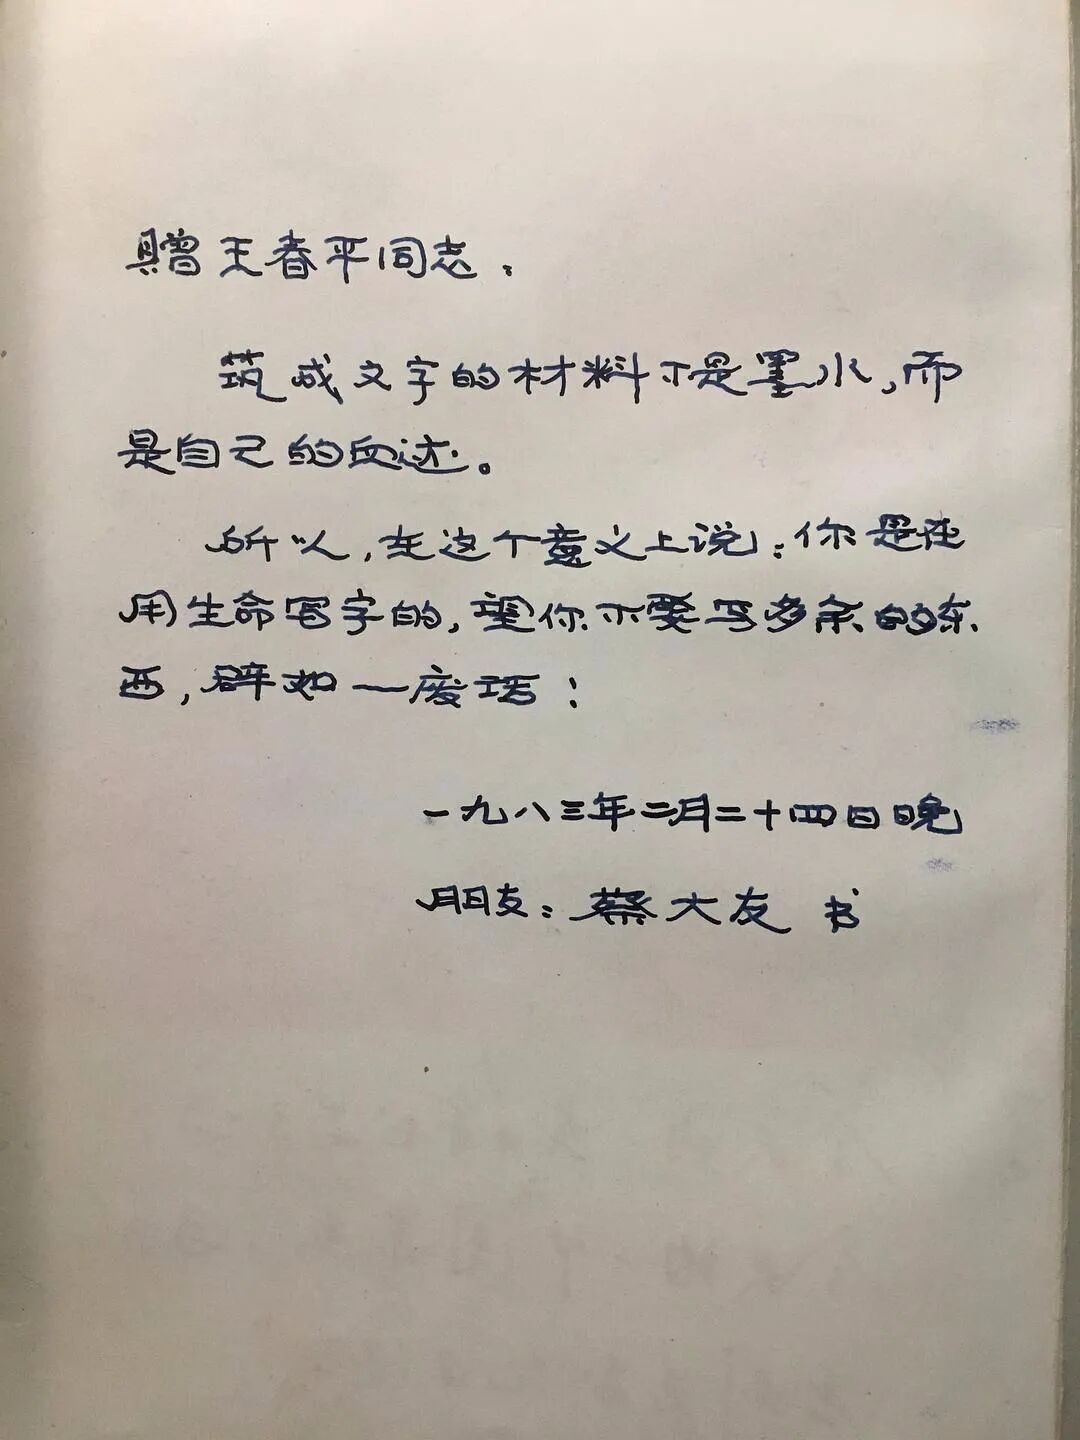 赠王春平同志：
筑成文字的材料不是墨水，而
是自己的血迹。
所以，在这个意义上说：你是在
用生命写字的，望你不要写多余的东
西，辟如一废话！
一九八三年二月二十四日晚
朋友：蔡大友 书